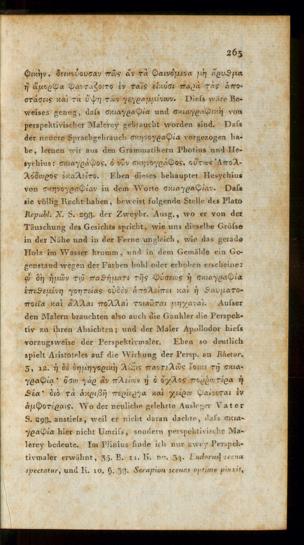 265
Φικὴν, δεικνύουσαν πῶς ἂν τὰ φαινόμενα μὴ ἄρυθμα
ἢ ἄμορφα φαντάζοιτο ἐν ταῖς εἰκόσι παρὰ τὰς ἀπο-
στάσεις καὶ τὰ ὕψη τῶν γεγραμμένων. Diess wäre Be-
weises genug, dass σκιαγραφία und σκιαγραφικὴ von
perspektivischer Malerey gebraucht worden sind. Dass
der neuere Sprachgebrauch σκηνογραφία vorgezogen ha-
be, lernen wir aus den Grammatikern Photius und He-
sychius: σκιαγράφος, ὁ νῦν σκηνογράφος. οὕτως Ἀπολ-
λόδωρος ἐκαλεῖτο. Eben dieses behauptet Hesychius
von σκηνογραφίαν in dem Worte σκιαγραφίαν. Dass
sie völlig Recht haben, beweist folgende Stelle des Plato
Republ. X. S. 293. der Zweybr. Ausg., wo er von der
Täuschung des Gesichts spricht, wie uns dieselbe Grösse
in der Nähe und in der Ferne ungleich, wie das gerade
Holz im Wasser krumm, und in dem Gemälde ein Ge-
genstand wegen der Farben hohl oder erhoben erscheine:
ᾧ δὴ ἡμῶν τῷ παθήματι τῆς φύσεως ἡ σκιαγραφία
ἐπιθεμένη γοητείας οὐδὲν ἀπολείπει καὶ ἡ θαυματο-
ποιΐα καὶ ἄλλαι πολλαὶ τοιαῦται μηχαναί. Ausser
den Malern brauchten also auch die Gaukler die Perspek-
tiv zu ihren Absichten; und der Maler Apollodor hiess
vorzugsweise der Perspektivmaler. Eben so deutlich
spielt Aristoteles auf die Wirkung der Persp. an Rhetor.
3, 12. ἡ δὲ δημηγορικὴ λέξις παντελῶς ἔοικε τῇ σκια-
γραφίᾳ· ὅσῳ γὰρ ἂν πλείων ᾖ ὁ ὄχλος πορρωτέρα ἡ
θέα· διὸ τὰ ἀκριβῆ περίεργα καὶ χείρω φαίνεται ἐν
ἀμφοτέραις. Wo der neuliche gelehrte Ausleger Vater
S. 293. anstiess, weil er nicht daran dachte, dass σκια-
γραφία hier nicht Umriss, sondern perspektivische Ma-
lerey bedeute. Im Plinius finde ich nur zwey Perspek-
tivmaler erwähnt, 35. B. 11. K. no. 34. Eudorus scena
spectatur, und K. 10. §. 39. Serapion scenas optime pinxit,